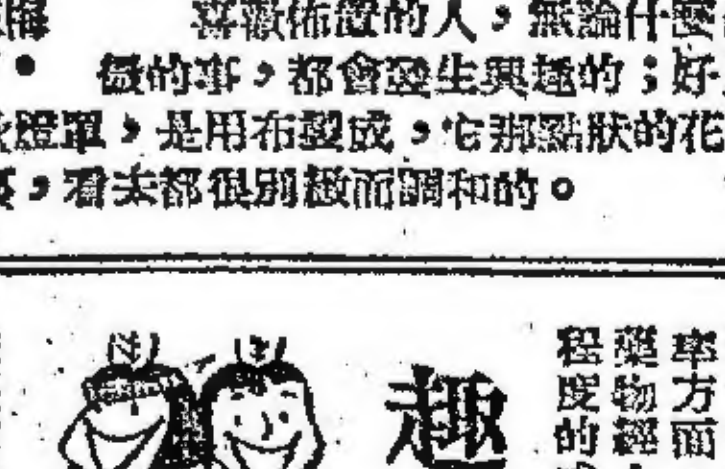 喜歡佈置的人，無論什麼
微的事，都會發生興趣的；好
燈罩，是用布製成，它那點狀的花
，看來都很別緻而調和的。
率方而
藥物經
程度的
趣